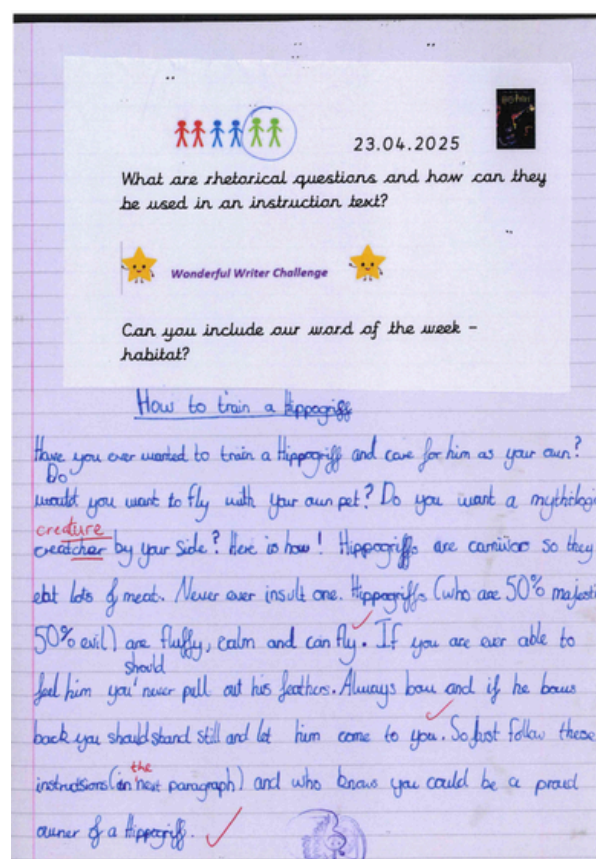 23.04.2025
What are rhetorical questions and how can they
be used in an instruction text?
Wonderful Writer Challenge
Can you include our word of the week –
habitat?
How to train a Hippogriff
Have you ever wanted to train a Hippogriff and care for him as your own?
Do
would you want to fly with your own pet? Do you want a mythologi
creature
creatcher by your side? Here is how! Hippogriffs are carnivors so they
eat lots of meat. Never ever insult one. Hippogriffs (who are 50% majesti
50% evil) are fluffy, calm and can fly. If you are ever able to
should
feel him you never pull out his feathers. Always bow and if he bows
back you should stand still and let him come to you. So just follow these
the
instructsions (in next paragraph) and who knows you could be a proud
owner of a Hippogriff.